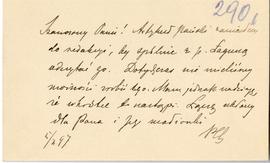 290
Szanowny Panie! Artykuł Pański zaniosłem
do redakcyi, by spólnie z p. Laguną
odczytać go. Dotychczas nie mieliśmy
możności zrobić tego. Mam jednak nadzieję,
że wkrótce to nastąpi. Łączę ukłony
dla Pana i Jego małżonki